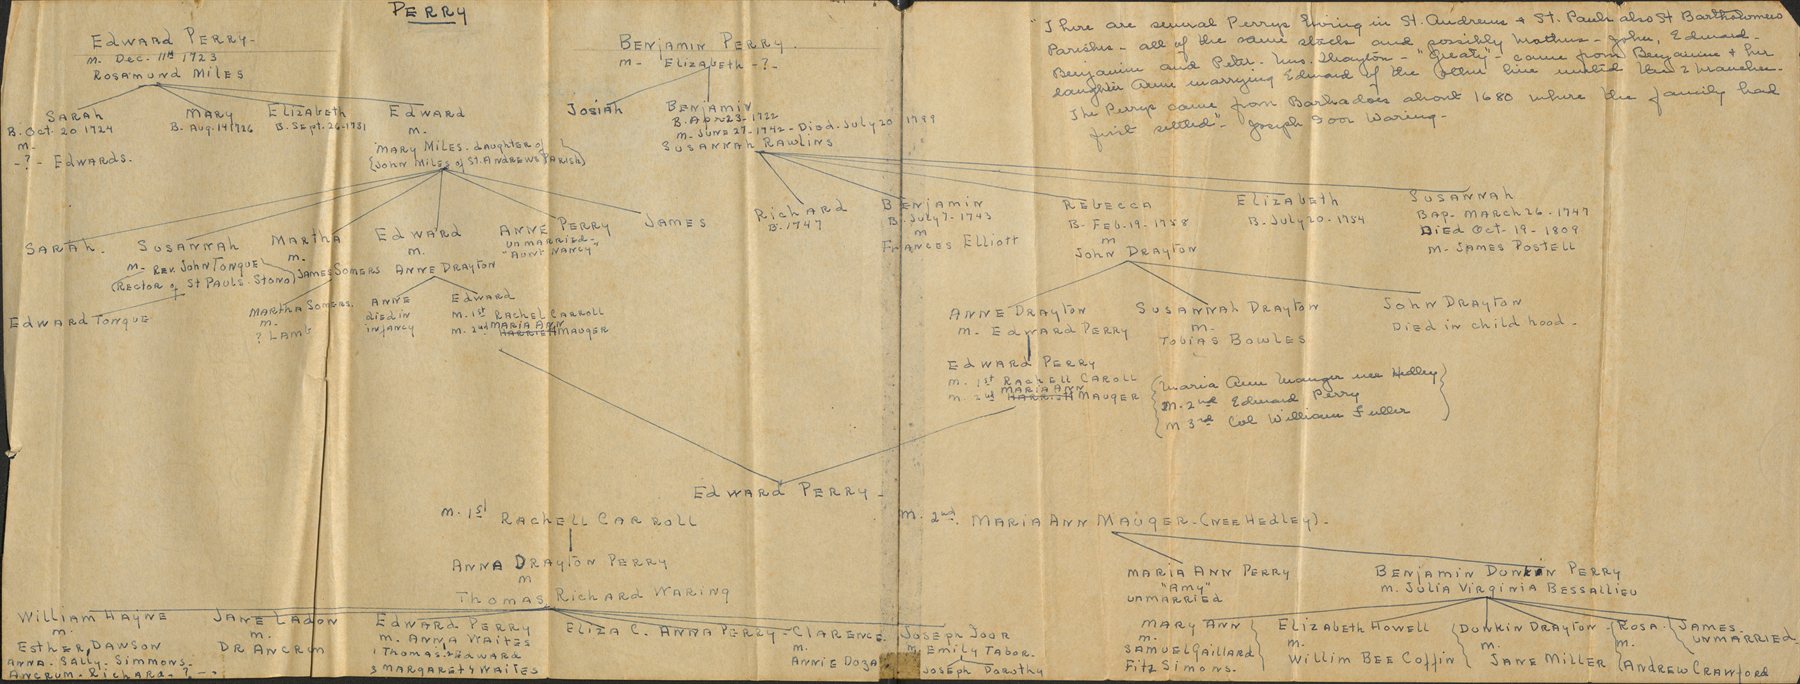 PERRY
EDWARD PERRY -
m. DEC. 11th 1723
ROSAMUND MILES
SARAH
B. OCT. 20 1724
m -
- ? - EDWARDS.
MARY
B. AUG. 14 1726
ELIZABETH
B. SEPT. 26 - 1731
EDWARD
m.
MARY MILES. daughter of
(JOHN MILES of ST. ANDREWS PARISH)
SARAH.
SUSANNAH
m - REV. JOHN TONGUE
(RECTOR of ST PAULS. STONO)
EDWARD TONGUE
MARTHA
m.
JAMES SOMERS
MARTHA SOMERS.
m.
? LAMB
EDWARD
m.
ANNE DRAYTON
ANNE
died in
infancy
EDWARD
m. 1st RACHEL CARROLL
MARIA ANN
m. 2nd HARRIET MAUGER
ANNE PERRY
UNMARRIED -
"AUNT NANCY"
JAMES
BENJAMIN PERRY.
m - ELIZABETH - ? -
JOSIAH
BENJAMIN
B. Apr 23 - 1722
m - JUNE 27 - 1742 - DIED. JULY 20 1799
SUSANNAH RAWLINS
RICHARD
B. 1747
BENJAMIN
B. July 7 - 1743
m
FRANCES ELLIOTT
REBECCA
B - FEB. 19. 1758
m
JOHN DRAYTON
ELIZABETH
B. JULY 20. 1754
SUSANNAH
BAP - MARCH 26. 1747
DIED OCT - 19 - 1809
m - JAMES POSTELL
ANNE DRAYTON
m - EDWARD PERRY
SUSANNAH DRAYTON
m.
TOBIAS BOWLES
JOHN DRAYTON
DIED in child hood -
EDWARD PERRY
m. 1st RACHELL CAROLL
MARIA ANN
m. 2nd HARRIET MAUGER
(Maria Ann Mauger nee Hedley)
m. 2nd Edward Perry
m 3rd Col William Fuller
"There are several Perrys living in St. Andrews & St. Pauls also St Bartholomews
Parishes - all of the same stock and possibly brothers - John, Edward -
Benjamin and Peter. Mrs. Drayton - "Greaty" - came from Benjamin & her
daughter Anne marrying Edward of the other line united the 2 branches -
The Perrys came from Barbadoes about 1680 where the family had
first settled" - Joseph Ioor Waring -
EDWARD PERRY -
m. 1st RACHELL CARROLL
ANNA DRAYTON PERRY
m
THOMAS RICHARD WARING
m. 2nd. MARIA ANN MAUGER - (NEE HEDLEY) -
MARIA ANN PERRY
"AMY"
UNMARRIED
BENJAMIN DUNKIN PERRY
m. JULIA VIRGINIA BESSALLIEU
WILLIAM HAYNE
m.
ESTHER DAWSON
ANNA. SALLY. SIMMONS.
ANCRUM. RICHARD. ? - -
JANE LADON
m.
DR ANCRUM
EDWARD PERRY
m. ANNA WAITES
1 THOMAS. 2 EDWARD
3 MARGARET 4 WAITES
ELIZA C. ANNA PERRY -
CLARENCE.
m.
ANNIE DOZA
JOSEPH IOOR
m EMILY TABOR.
JOSEPH DOROTHY
MARY ANN
m.
SAMUEL GAILLARD
FITZ SIMONS.
ELIZABETH HOWELL
m.
WILLIM BEE COFFIN
DUNKIN DRAYTON
m.
JANE MILLER
ROSA.
m.
ANDREW CRAWFORD
JAMES.
UNMARRIED